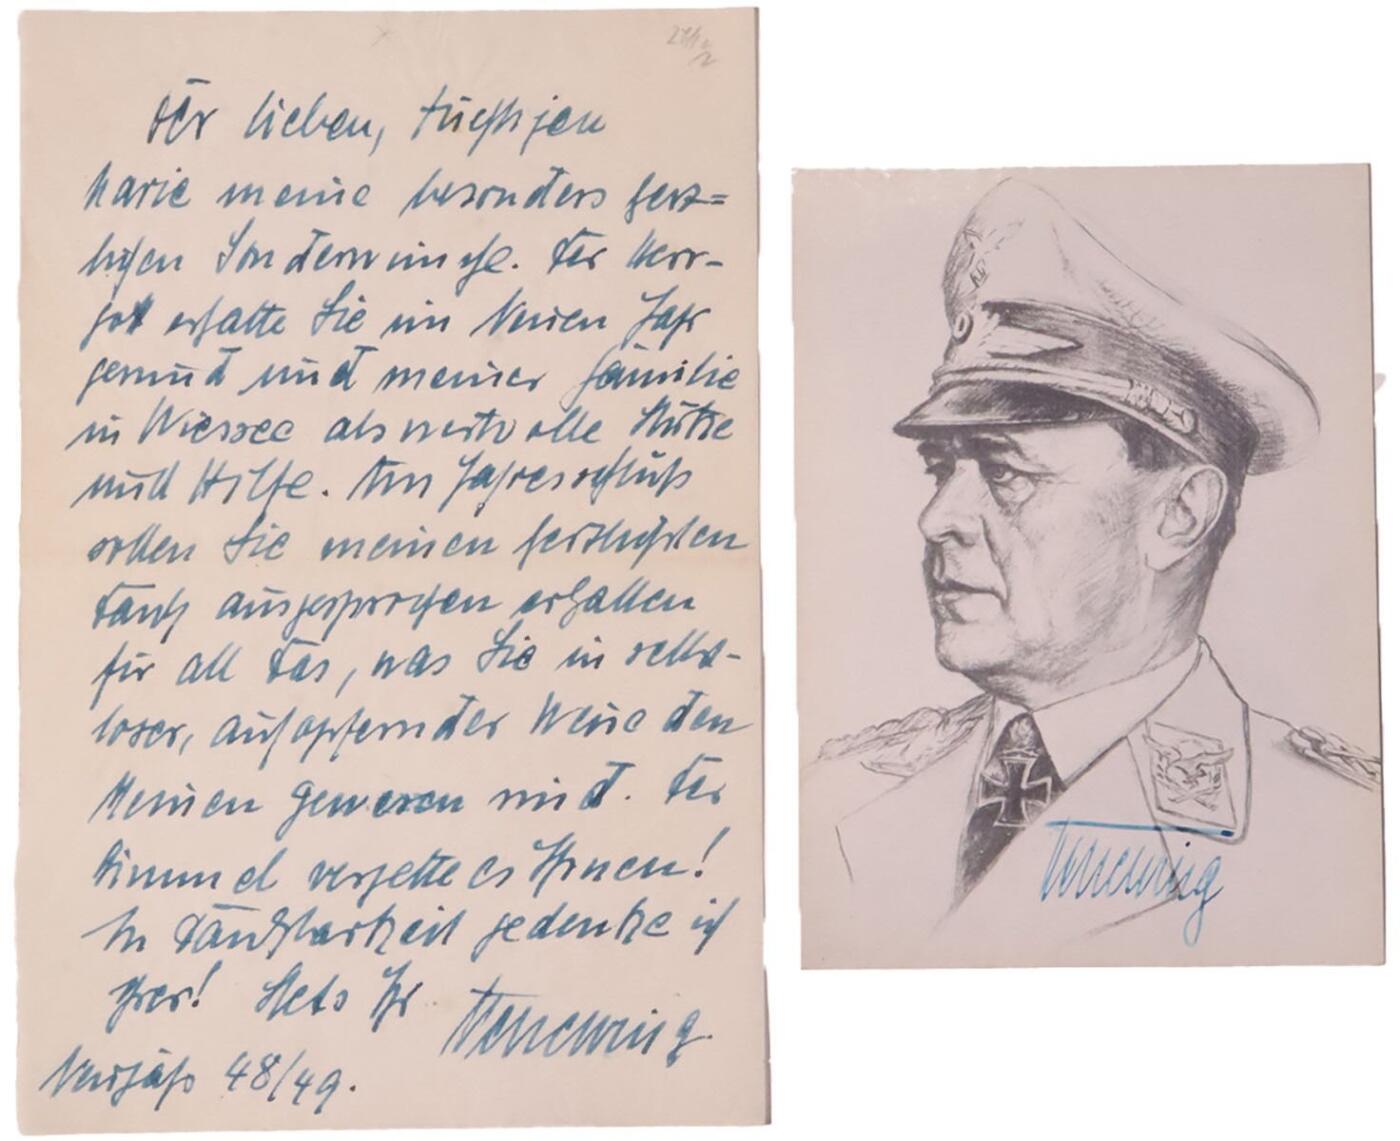 Der lieben, tüchtigen
Marie meine besonders herz=
lichen Sonderwünsche. Der Herr-
gott erhalte Sie im Neuen Jahr
gesund und meiner Familie
in Wiessee als wertvolle Stütze
und Hilfe. Am Jahresschluß
sollen Sie meinen herzlichsten
Dank ausgesprochen erhalten
für all das, was Sie in selbst-
loser, aufopfernder Weise den
Meinen gewesen sind. Der
Himmel vergelte es Ihnen!
In Dankbarkeit gedenke ich
Ihrer! Stets Ihr
Neujahr 48/49.